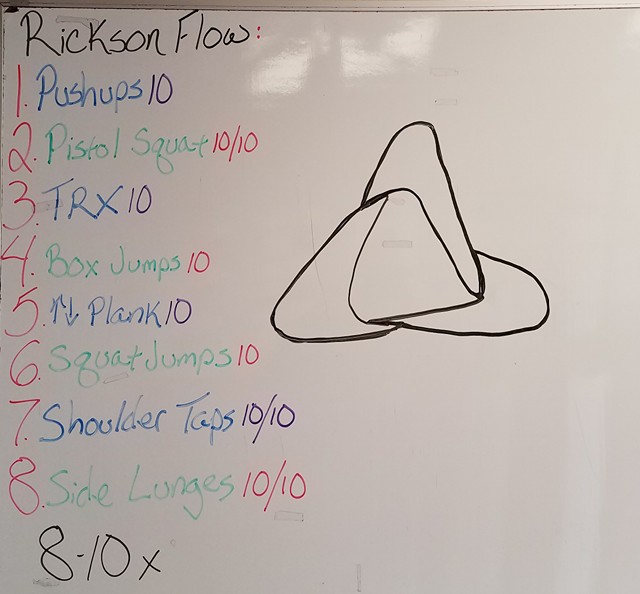 Rickson Flow:
1. Pushups 10
2. Pistol Squat 10/10
3. TRX 10
4. Box Jumps 10
5. ↑↓ Plank 10
6. Squat Jumps 10
7. Shoulder Taps 10/10
8. Side Lunges 10/10
8-10 x